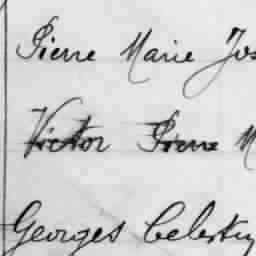 Pierre Marie Jos
Victor Pierre M
Georges Celestin